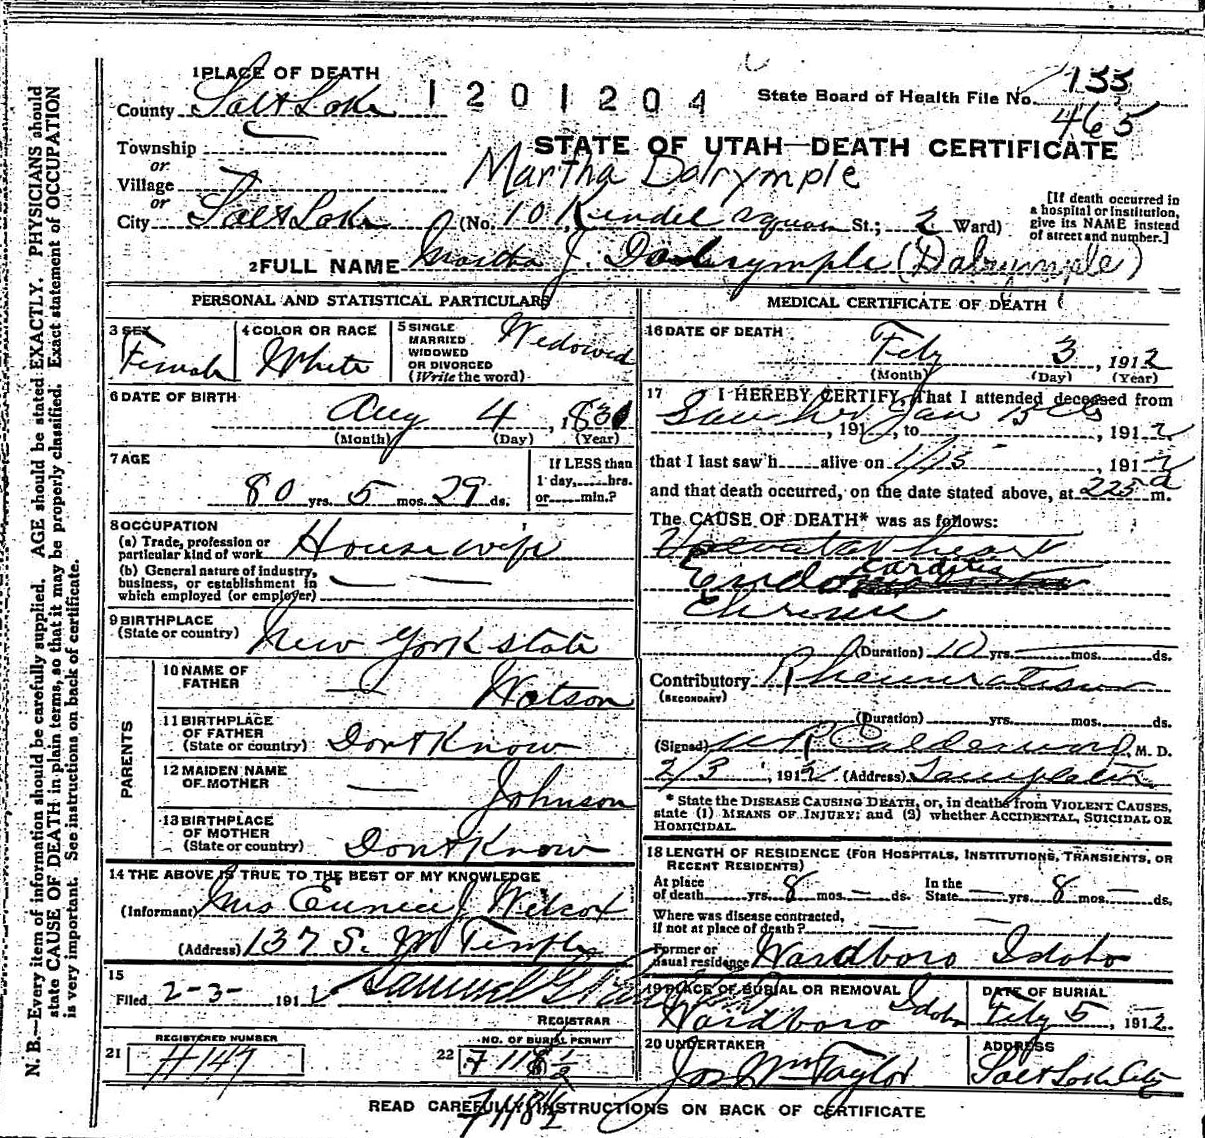 1 PLACE OF DEATH
County Salt Lake
1201204
State Board of Health File No. 133
465
Township
or
Village
or
City Salt Lake
STATE OF UTAH—DEATH CERTIFICATE
Martha Dalrymple
(No. 101 Kendel Square St.; 2 Ward)
[If death occurred in
a hospital or institution,
give its NAME instead
of street and number.]
2 FULL NAME Martha J. Dalrymple (Dalrymple)
PERSONAL AND STATISTICAL PARTICULARS
3 SEX
Female
4 COLOR OR RACE
White
5 SINGLE
MARRIED
WIDOWED
OR DIVORCED
(Write the word)
Widowed
6 DATE OF BIRTH
Aug 4, 1831
(Month) (Day) (Year)
7 AGE
80 yrs. 5 mos. 29 ds.
If LESS than
1 day,......hrs.
or......min.?
8 OCCUPATION
(a) Trade, profession or
particular kind of work House wife
(b) General nature of industry,
business, or establishment in
which employed (or employer)
9 BIRTHPLACE
(State or country) New York state
PARENTS
10 NAME OF
FATHER — Watson
11 BIRTHPLACE
OF FATHER
(State or country) Dont Know
12 MAIDEN NAME
OF MOTHER — Johnson
13 BIRTHPLACE
OF MOTHER
(State or country) Dont Know
14 THE ABOVE IS TRUE TO THE BEST OF MY KNOWLEDGE
(Informant) Mrs Eunice J. Wilcox
(Address) 137 S. W Temple
15
Filed 2-3- 1912 Samuel G.
REGISTRAR
REGISTERED NUMBER
21 H147
NO. OF BURIAL PERMIT
22
MEDICAL CERTIFICATE OF DEATH
16 DATE OF DEATH
Feby 3, 1912
(Month) (Day) (Year)
17 I HEREBY CERTIFY, That I attended deceased from
Saw her Jan 15, 191, to, 1912
that I last saw h alive on 1/15, 1912
and that death occurred, on the date stated above, at 225 a m.
The CAUSE OF DEATH* was as follows:
heart
Endocarditis
Chronic
(Duration) 10 yrs. mos. ds.
Contributory Rheumatism
(SECONDARY)
(Duration) yrs. mos. ds.
(Signed) W R Calderwood, M. D.
2/3, 1912 (Address) Templeton
* State the DISEASE CAUSING DEATH, or, in deaths from VIOLENT CAUSES,
state (1) MEANS OF INJURY; and (2) whether ACCIDENTAL, SUICIDAL OR
HOMICIDAL.
18 LENGTH OF RESIDENCE (FOR HOSPITALS, INSTITUTIONS, TRANSIENTS, OR
RECENT RESIDENTS)
At place
of death — yrs. 8 mos. — ds.
In the
State — yrs. 8 mos. — ds.
Where was disease contracted,
if not at place of death?
Former or
usual residence Wardboro Idaho
19 PLACE OF BURIAL OR REMOVAL
Wardboro Idaho
DATE OF BURIAL
Feby 5, 1912
20 UNDERTAKER
Jos Wm Taylor
ADDRESS
Salt Lake City
READ CAREFULLY INSTRUCTIONS ON BACK OF CERTIFICATE
N. B.—Every item of information should be carefully supplied. AGE should be stated EXACTLY. PHYSICIANS should
state CAUSE OF DEATH in plain terms, so that it may be properly classified. Exact statement of OCCUPATION
is very important. See instructions on back of certificate.